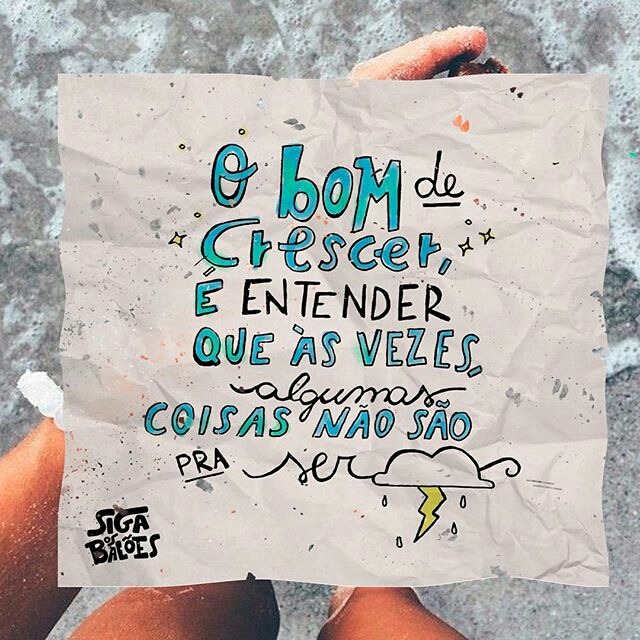 O BOM de
Crescer,
É ENTENDER
QUE ÀS VEZES,
algumas
COISAS NÃO SÃO
PRA ser
SIGA
OS
BALÕES